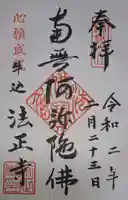 奉拝
令和二年
二月二十三日
南無阿弥陀佛
心願成
法正寺